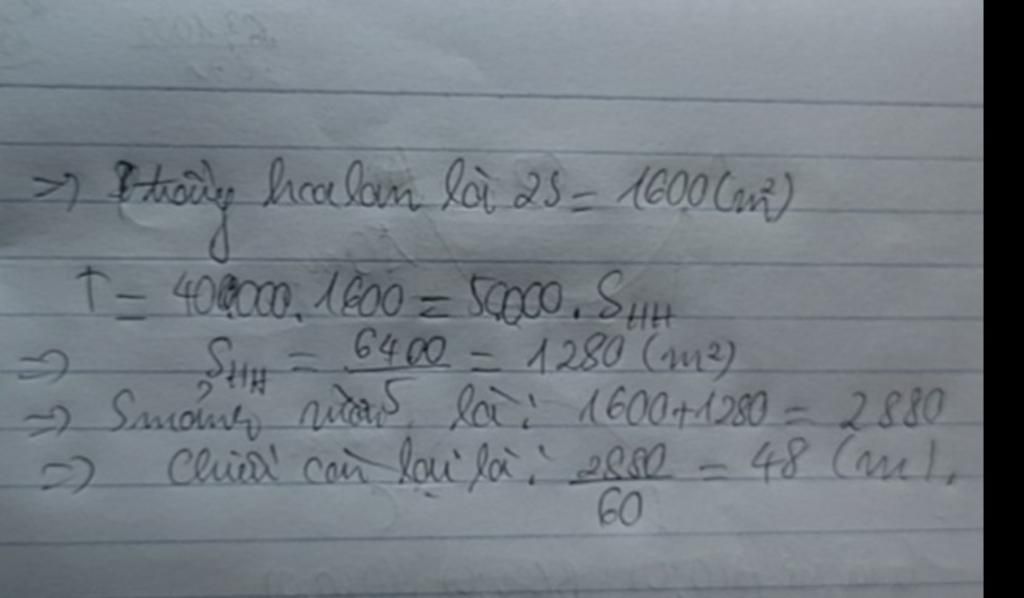 => S trồng hoa lan là 2S = 1600 (m²)
T = 400000. 1600 = 50000. S_HH
=> S_HH = 6400/5 = 1280 (m²)
=> S mảnh vườn là: 1600+1280 = 2880
=> Chiều còn lại là: 2880/60 = 48 (m).